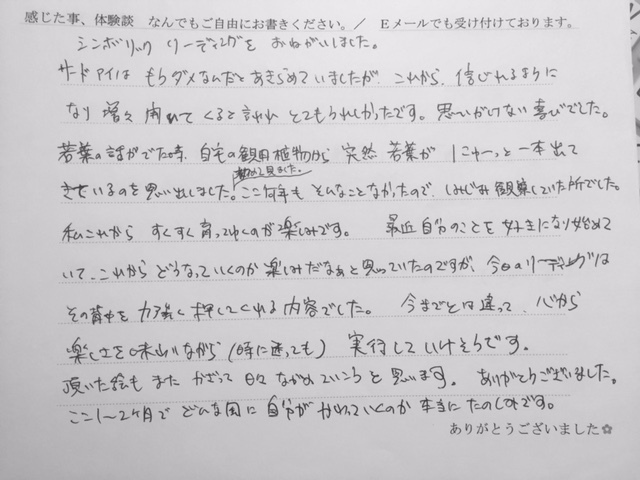 感じた事、体験談　なんでもご自由にお書きください。／　Eメールでも受け付けております。
シンボリック リーディングを おねがいしました。
サードアイは もうダメなんだと あきらめていましたが、これから、信じれるように
なり 増々 開いて くると 言われ とてもうれしかったです。思いがけない喜びでした。
若葉の話がでた時、自宅の観用植物から 突然 若葉が 1にょーっと一本出て
初めて見ました。
きているのを思い出しました。ここ何年も そんなことなかったので、しみじみ観察していた所でした。
私これから すくすく育ってゆくのが楽しみです。　最近 自分のことを好きになり始めて
いて、これから どうなっていくのか 楽しみだなぁと思っていたのですが、今日のリーディングは
その背中を 力強く押してくれる内容でした。　今までとは違って、心から
楽しさを味わいながら（時に迷っても）実行していけそうです。
頂いた絵も また かざって 日々 ながめていこうと思います。ありがとうございました。
ここ1〜2ヶ月で どんな風に 自分が かわっていくのか 本当に たのしみです。
ありがとうございました✿